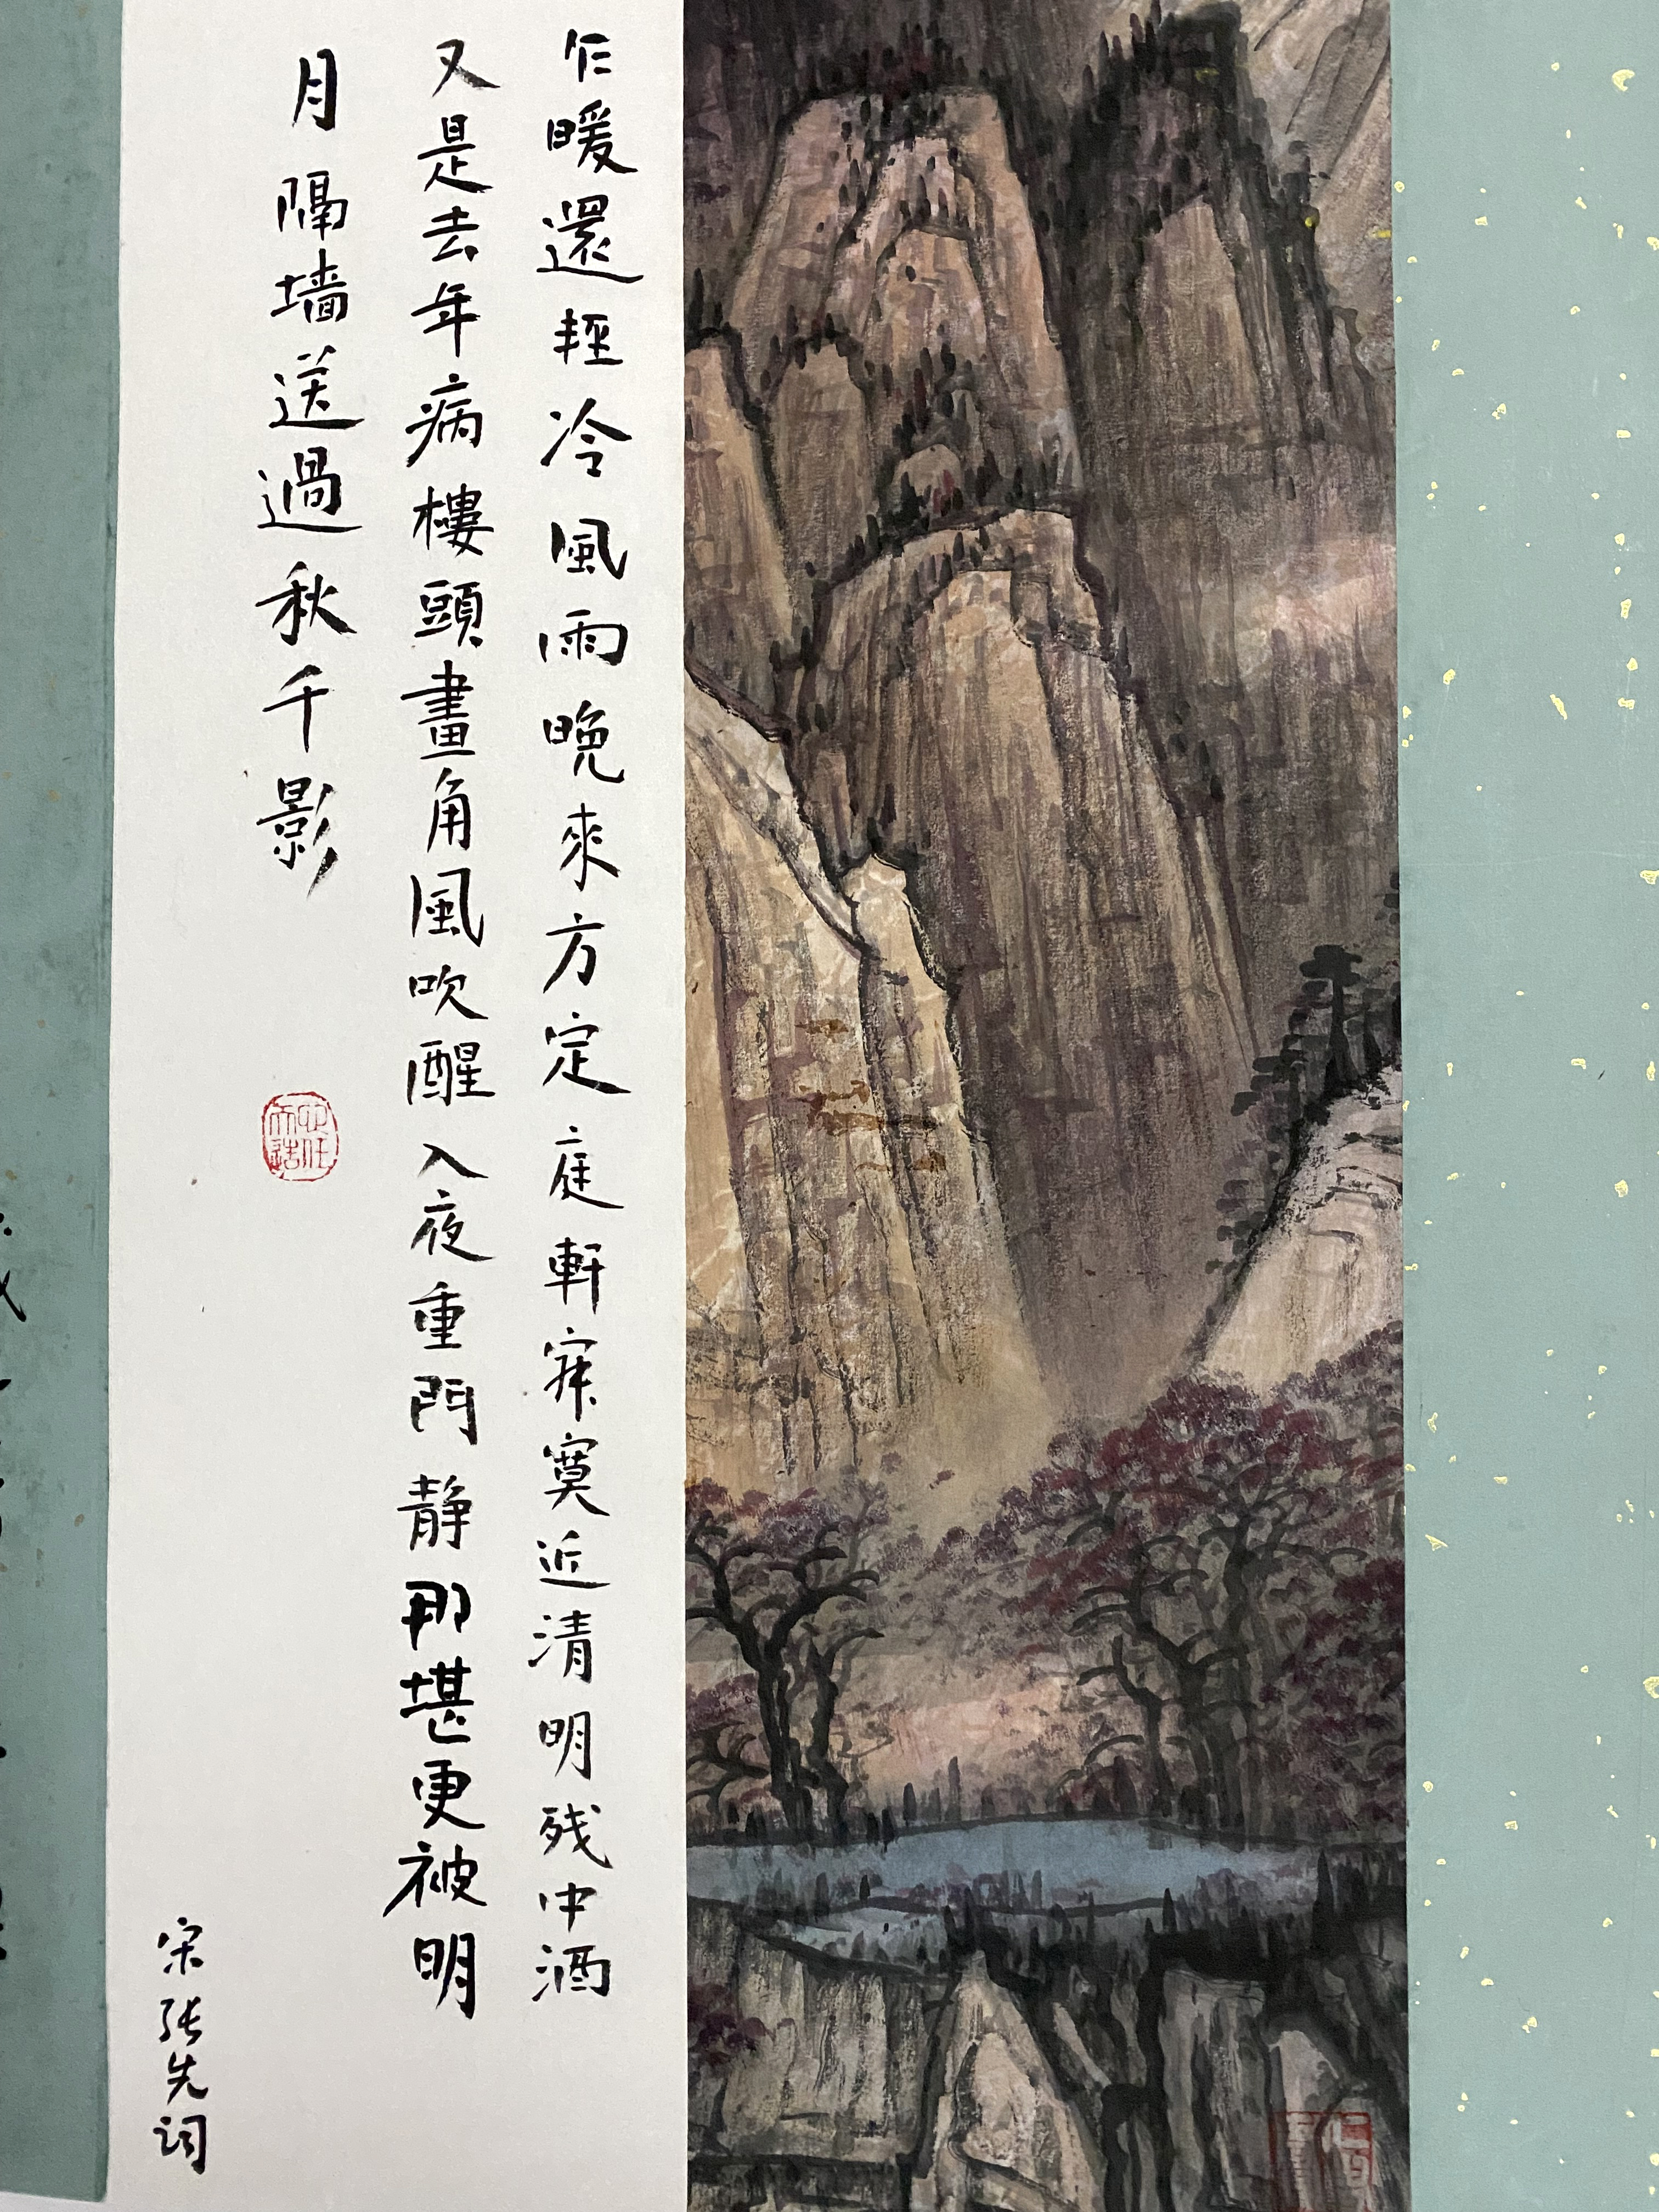 乍暖還輕冷風雨晚來方定庭軒寂寞近清明残中酒
又是去年病樓頭畫角風吹醒入夜重門静那堪更被明
月隔墙送過秋千影
宋張先词